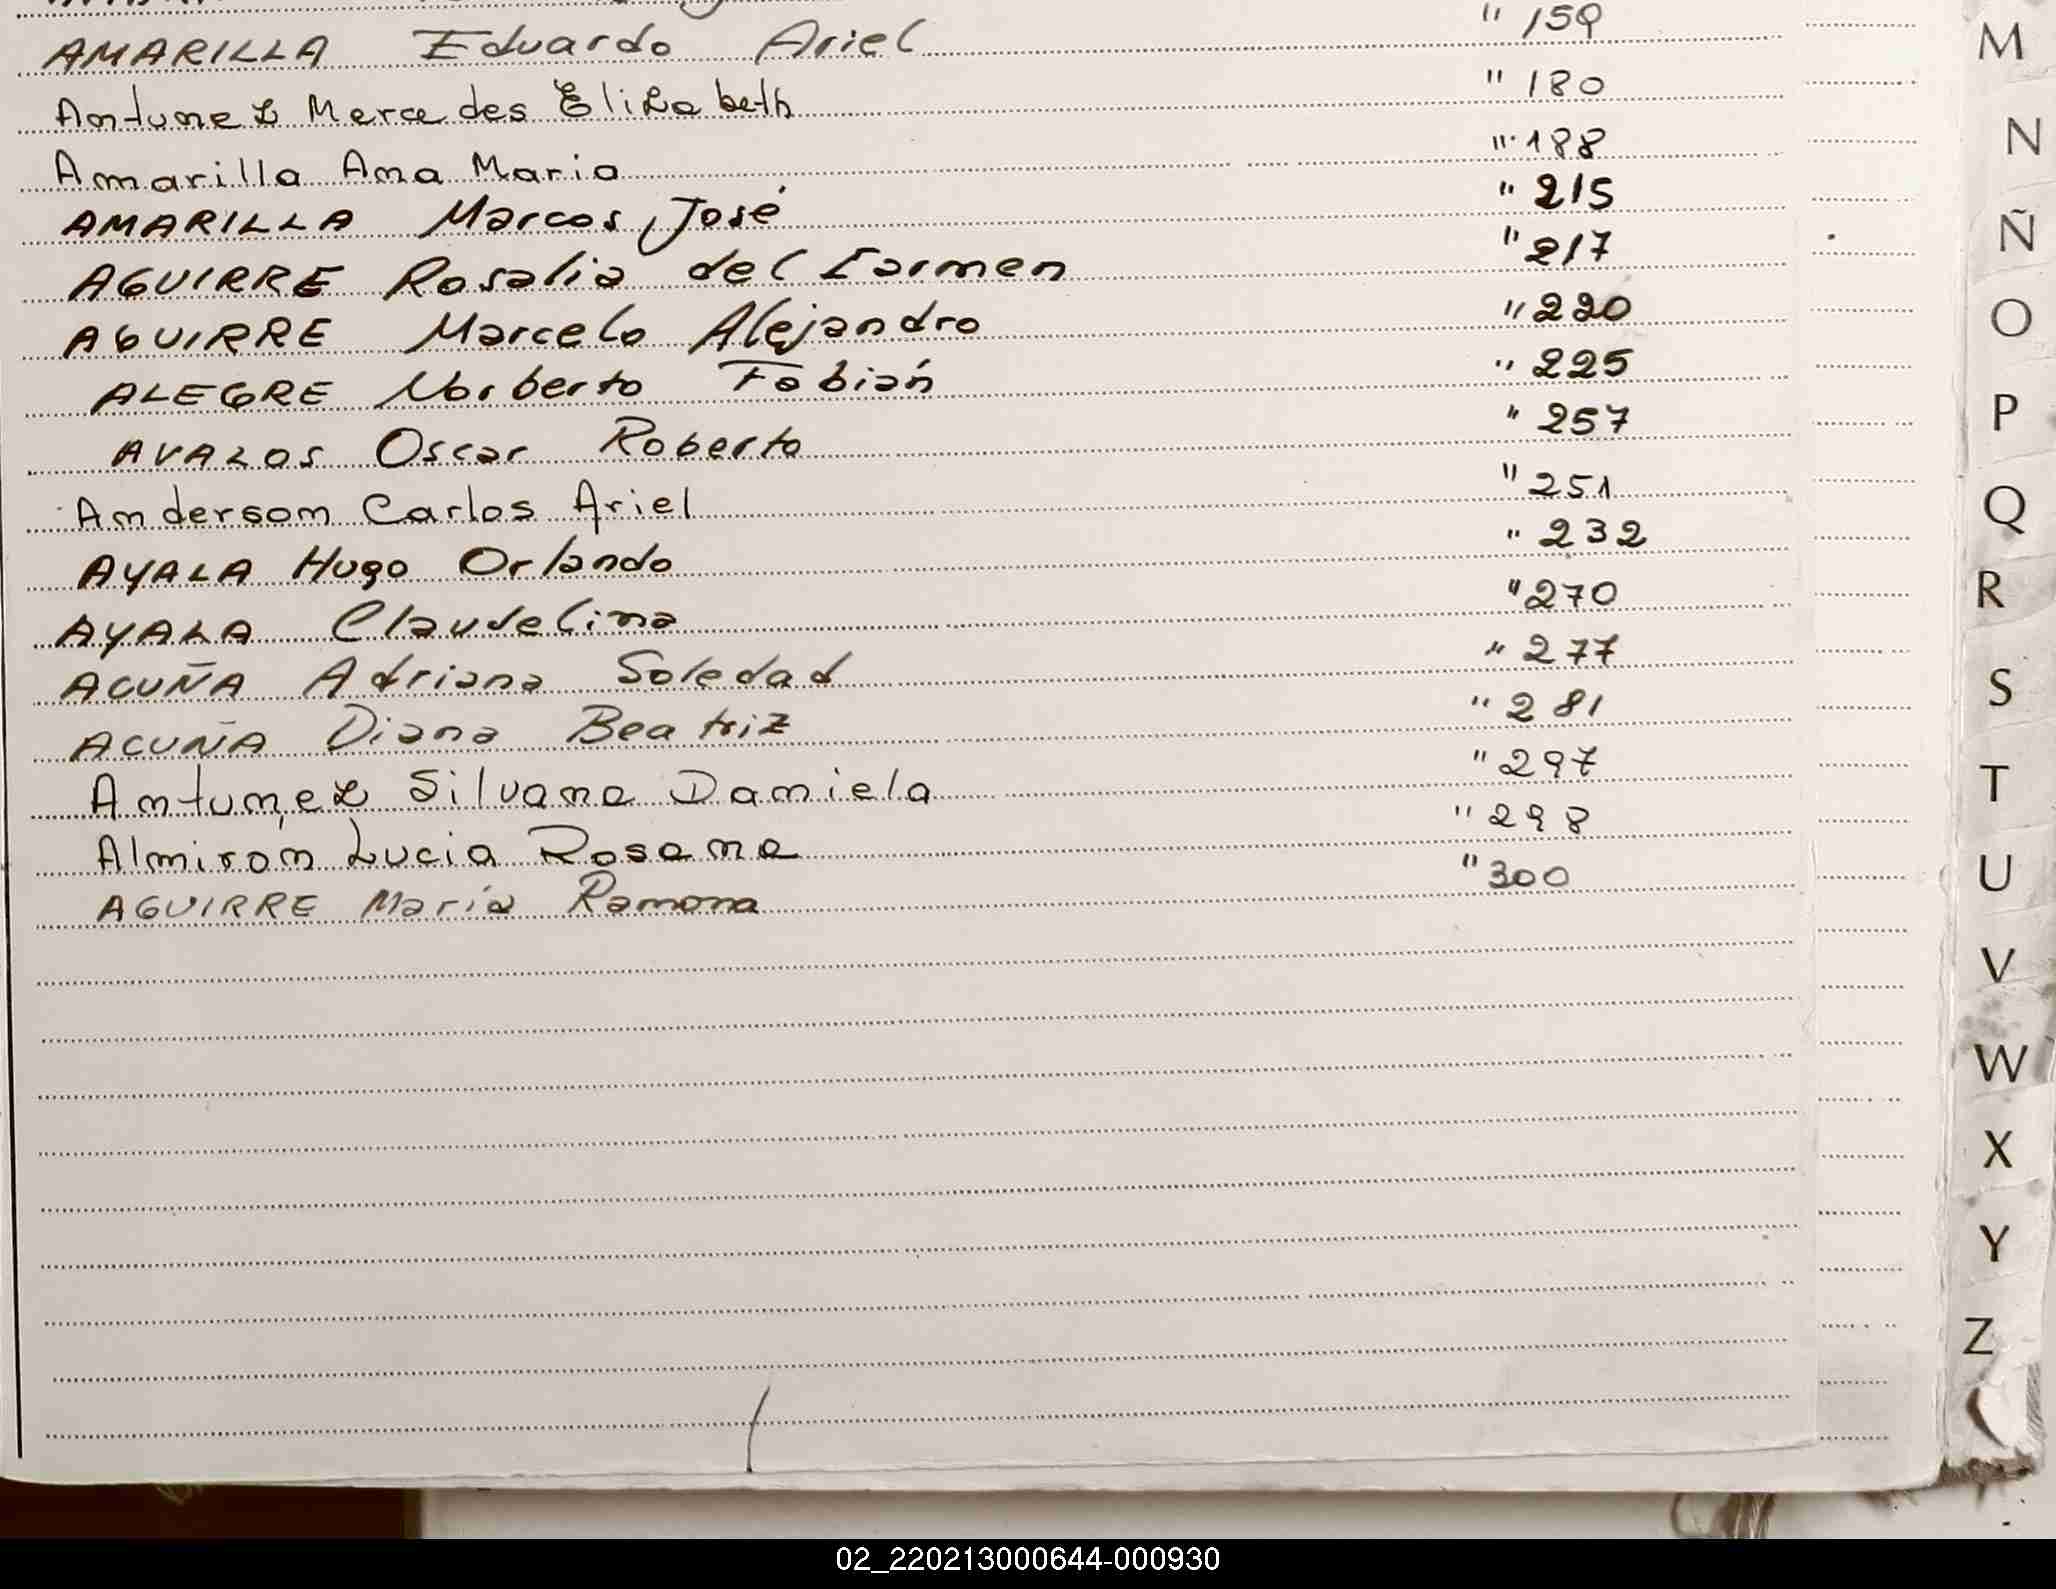 AMARILLA Eduardo Ariel " 159
Antunez Mercedes Elizabeth " 180
Amarilla Ana Maria " 188
AMARILLA Marcos José " 215
AGUIRRE Rosalia del Carmen " 217
AGUIRRE Marcelo Alejandro " 220
ALEGRE Norberto Fabián " 225
AVALOS Oscar Roberto " 257
Anderson Carlos Ariel " 251
AYALA Hugo Orlando " 232
AYALA Claudelina " 270
ACUÑA Adriana Soledad " 277
ACUÑA Diana Beatriz " 281
Antunez Silvana Daniela " 297
Almirón Lucia Rosana " 298
AGUIRRE María Ramona " 300
M
N
Ñ
O
P
Q
R
S
T
U
V
W
X
Y
Z
02_220213000644-000930